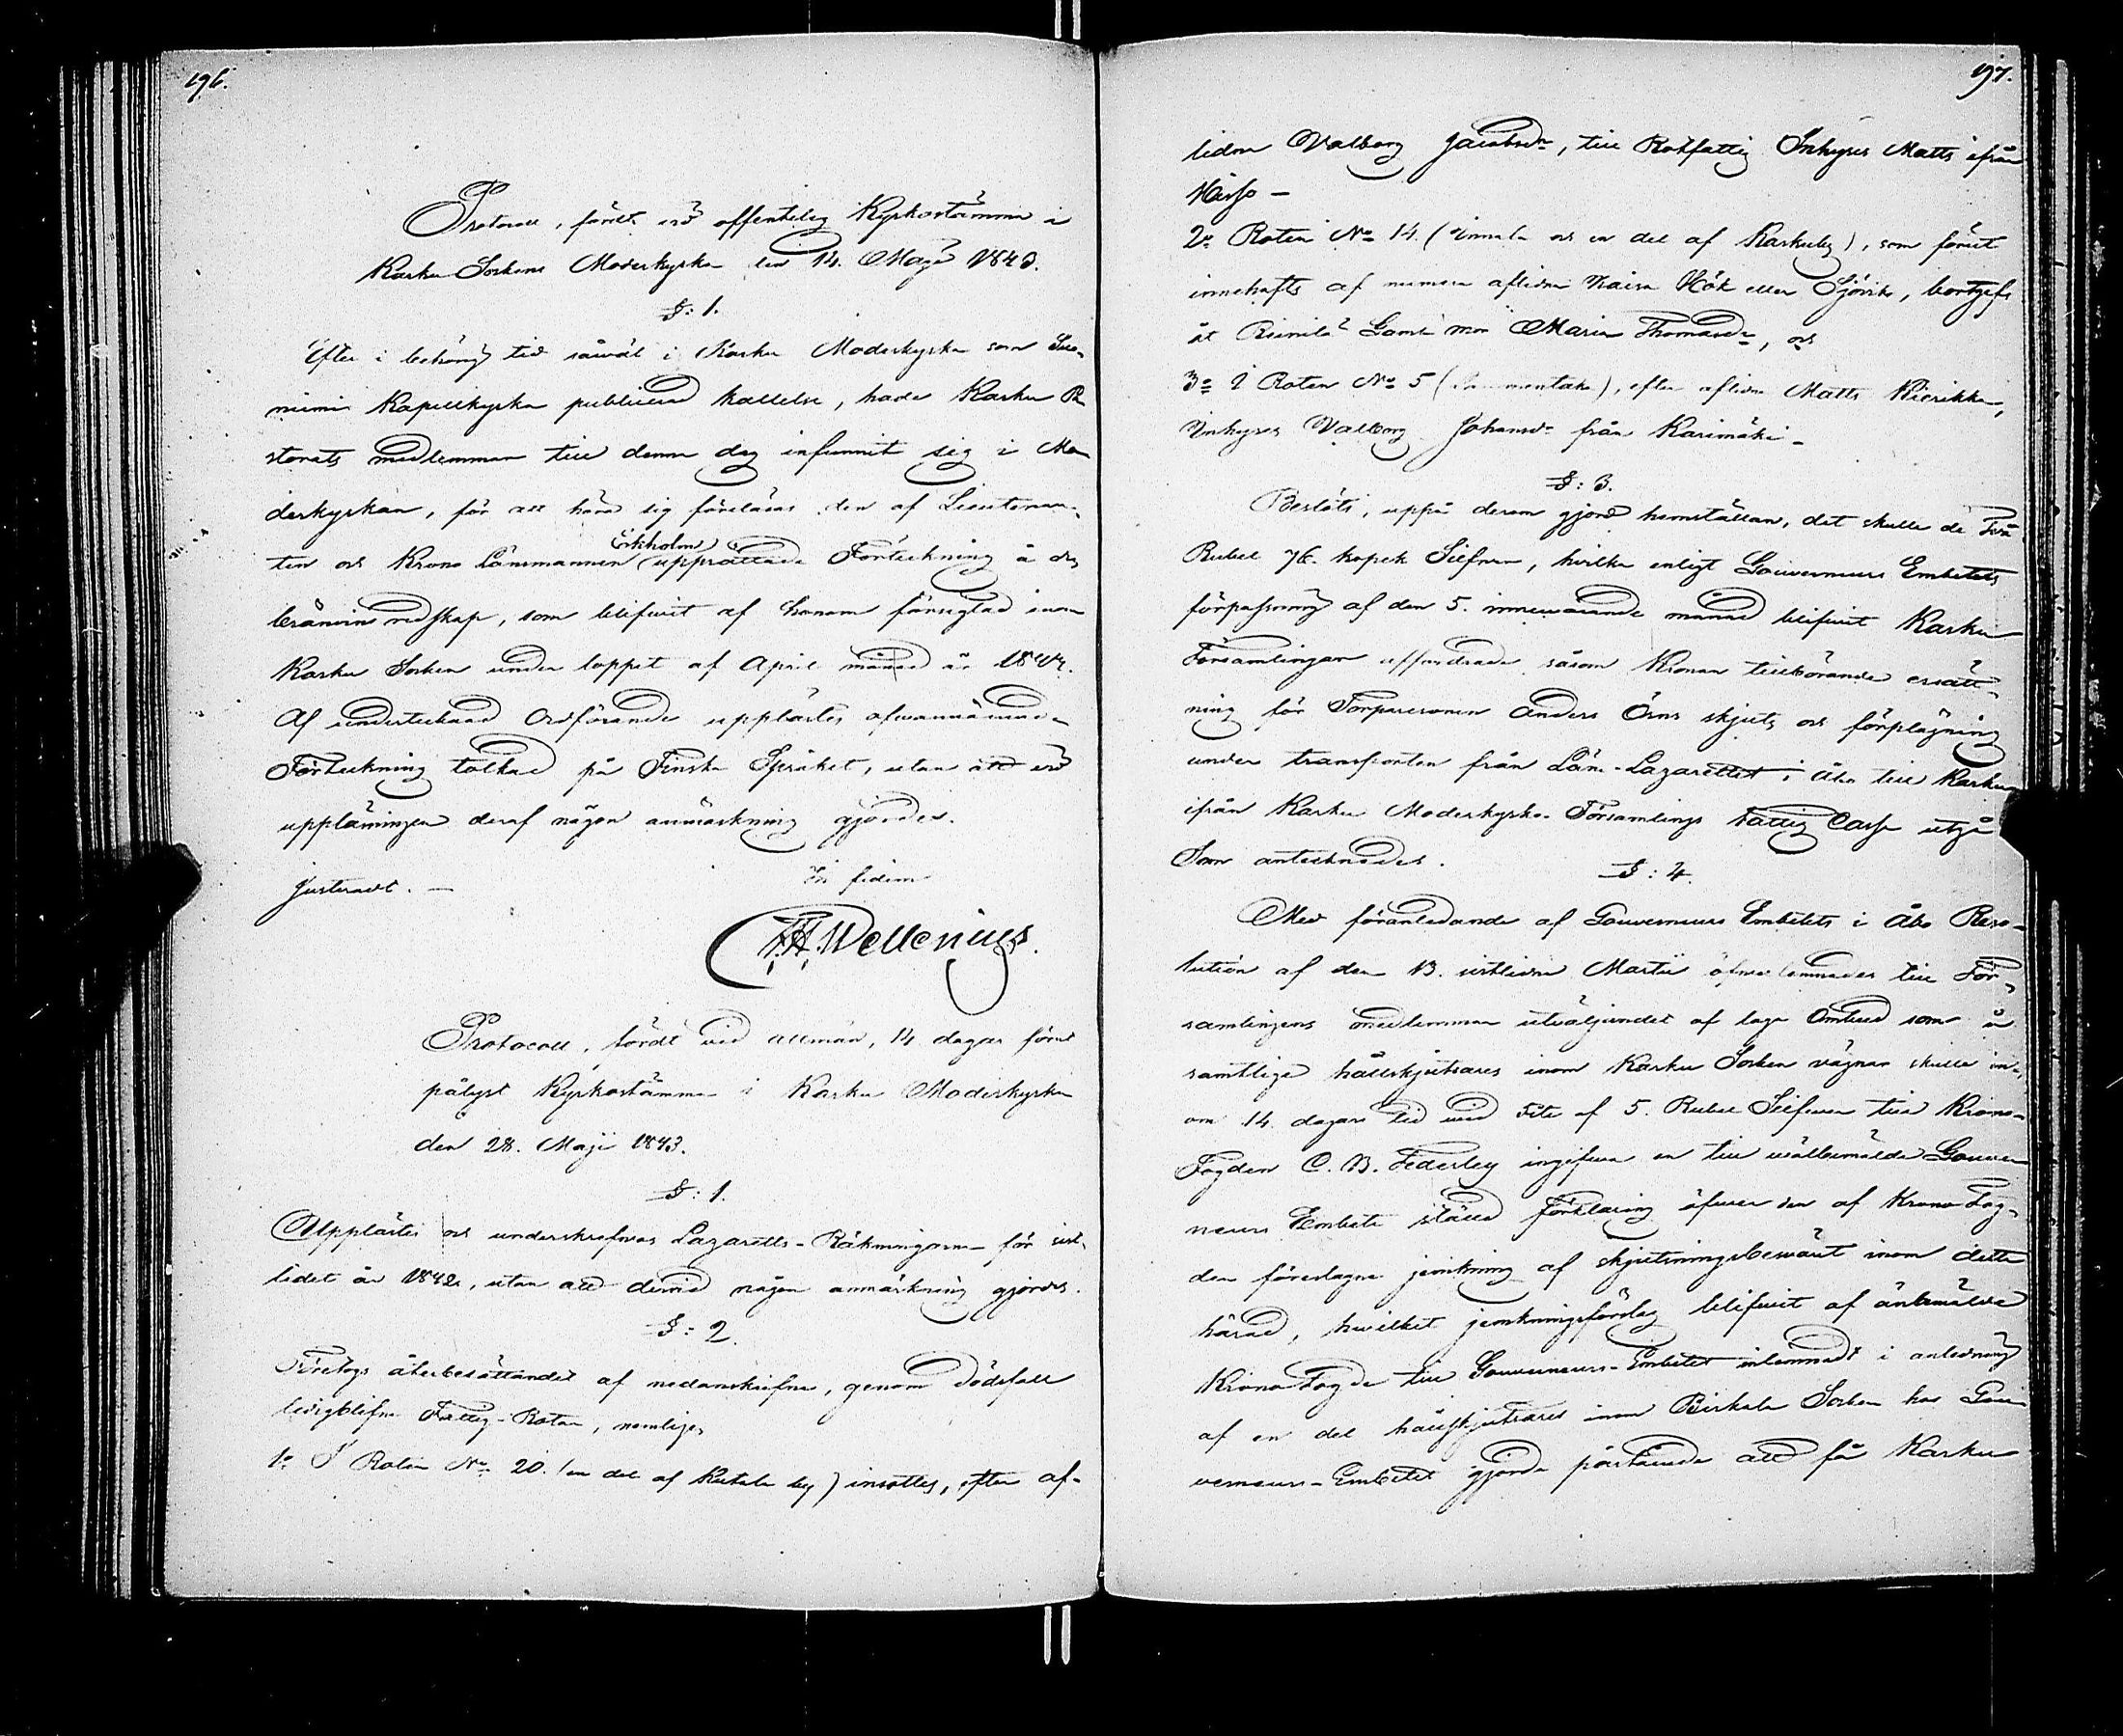 196.
Protocoll, fördt vid offentelig Kyrkostämma i
Karku Sockens Moderkyrka den 14. Maji 1843.
§: 1.
Efter i behörig tid såwäl i Karku Moderkyrka som Suo-
niemi Kapellkyrka publicerad kallelse, hade Karku Pa
storats medlemmar till denna dag infunnit sig i Mo
derkyrkan, för att höra sig föreläsas den af Lieutenan-
ten och Krono Länsmannen Eckholm upprättade Förteckning å de
bränvins redskap, som blifwit af honom förseglad inom
Karku Socken under loppet af April månad år 1843.
Af undertecknad Ordförande upplästes ofvannämnde
Förteckning tolkad på Finska Språket, utan att vid
uppläsningen deraf någon anmärkning gjordes.
In fidem
Justeradt. —
F.H. Wellenius.
Protocoll, fördt vid allmän, 14 dagar förut
pålyst Kyrkostämma i Karku Moderkyrka
den 28. Maji 1843.
§: 1.
Upplästes och underskrefvos Lazaretts-Räkningarne för sist-
lidet år 1842, utan att dervid någon anmärkning gjordes.
§: 2.
Företogs återbesättandet af nedanskrefne, genom dödsfall
ledigblifne Fattig-Rotar, nemligen
1o I Roten No 20. (en del af Kutala by) insattes, efter af-
197.
lidna Valborg Jacobsdr, till Rotfattig Inhyses Matts ifrån
2o Roten No 14. (Innala och en del af Karkuby), som förut
innehafts af numera aflidna Kaisa Hök eller Sjövik, bortgafs
åt Riemilä Gamla mor Maria Thomasdr, och
3o I Roten No 5 (), efter aflidne Matts Kierikka,
Inhyses Valborg Johansdr från Karimäki –
§: 3.
Beslöts, uppå derom gjord hemställan, det skulle de Två
Rubel 76. kopek Silfver, hvilka enligt Gouverneurs Embetets
förpassning af den 5. innewarande månad blifwit Karku
Församlingen affordrade såsom Kronan tillhörande ersätt-
ning för Torparesonen Anders Örns skjuts och förplägning
under transporten från Läns-Lazarettet i Åbo till Karku
ifrån Karku Moderkyrko-Församlings Fattig Cassa utgå
Som antecknades.
§: 4.
Med föranledande af Gouverneurs Embetets i Åbo Reso-
lution af den 13. sistlidne Martii öfverlemnades till För-
samlingens medlemmar utväljandet af laga Ombud som å
samtlige hållskjutsares inom Karku Socken vägnar skulle in-
om 14. dagars tid vid vite af 5. Rubel Silfver till Krono-
Fogden C. B. Federley ingifva en till wälbemälde Gouver-
neurs Embete ställd förklaring öfwer den af Krono Fog-
den föreslagne jemkning af skjutsningsbeswäret inom detta
härad, hwilket jemkningsförslag blifwit af änbemälde
Krono Fogde till Gouverneurs-Embetet inlemnadt i anledning
af en del hållskjutsares inom Birkala Socken hos Gou-
verneurs-Embetet gjorda påstående att få Karku